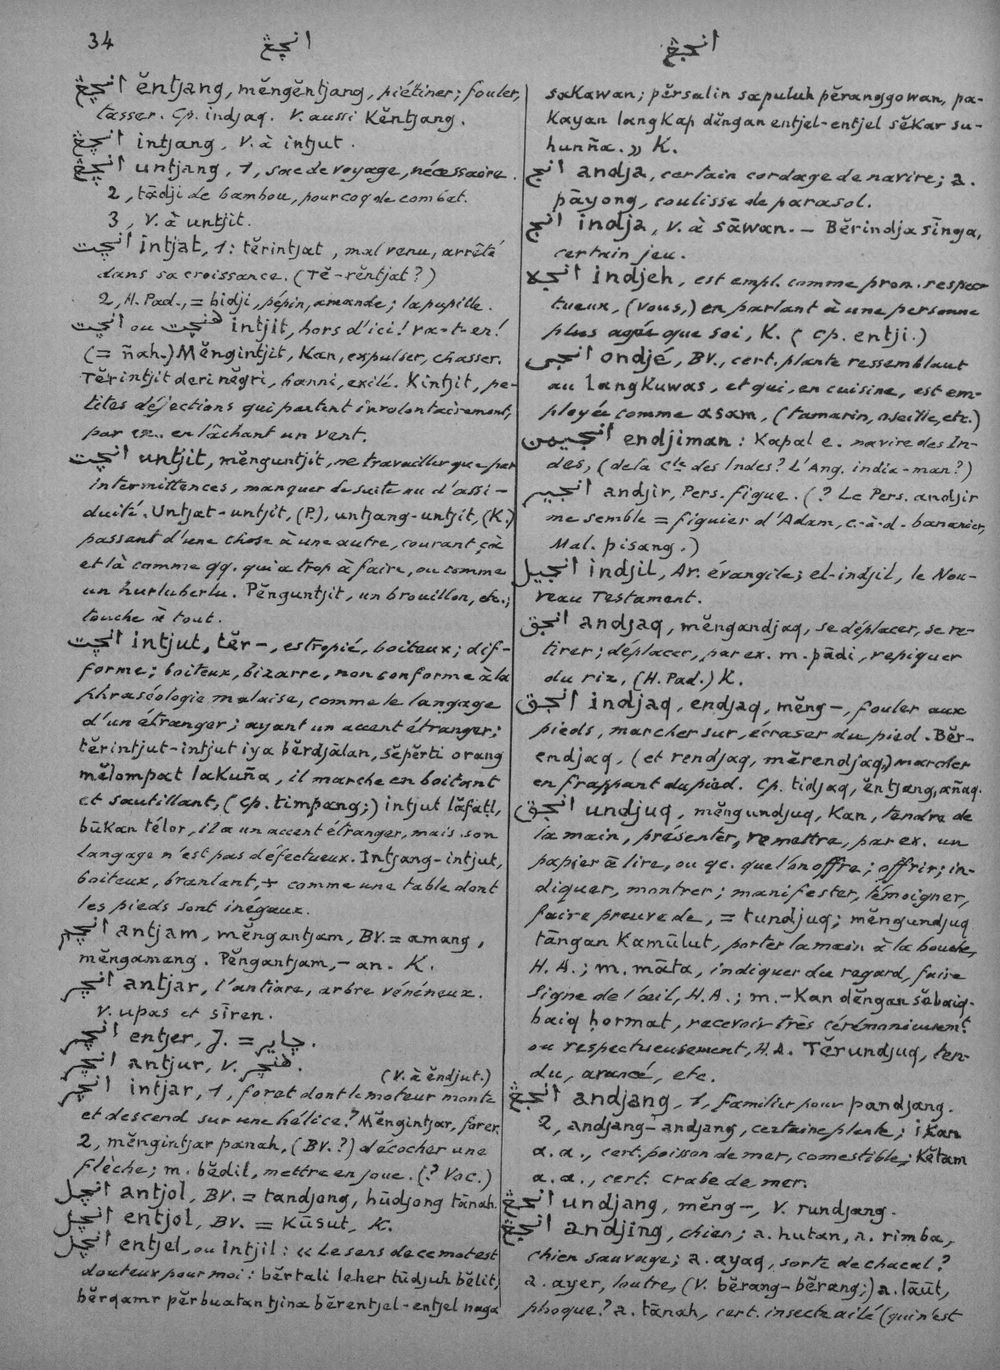 34
انچڠ
انجڠ
انچڠ ĕntjang, mĕngĕntjang, piétiner; fouler,
tasser. Cp. indjaq. V. aussi Kĕntjang.
انچڠ intjang, V. à intjut.
انچڠ untjang, 1, sac de voyage, nécessaire.
2, tādji de bambou, pour coq de combat.
3, V. à untjit.
انچت intjat, 1: tĕrintjat, mal venu, arrêté
dans sa croissance. (Tĕ-rĕntjat?)
2, H. Pad., = bidji, pépin, amande; la pupille.
انچت ou هنچت intjit, hors d'ici! va-t-en!
(= ñah.) Mĕngintjit, Kan, expulser, chasser.
Tĕrintjit deri nĕgri, banni, exilé. Kintjit, pe-
tites déjections qui partent involontairement,
par ex. en lâchant un vent.
انچت untjit, mĕnguntjit, ne travailler que par
intermittences, manquer de suite ou d'assi-
duité. Untjat-untjit, (P.), untjang-untjit, (K.)
passant d'une chose à une autre, courant çà
et là comme qq. qui a trop à faire, ou comme
un hurluberlu. Pĕnguntjit, un brouillon, etc.;
touche à tout.
انچت intjut, tĕr-, estropié, boiteux; dif-
forme; boiteux, bizarre, non conforme à la
phraséologie malaise, comme le langage
d'un étranger; ayant un accent étranger;
tĕrintjut-intjut iya bĕrdjālan, sĕpĕrti orang
mĕlompat lakuña, il marche en boitant
et sautillant, (Cp. timpang;) intjut lāfatl,
būkan télor, il a un accent étranger, mais son
langage n'est pas défectueux. Intjang-intjut,
boiteux, branlant, + comme une table dont
les pieds sont inégaux.
انچم antjam, mĕngantjam, BV. = amang,
mĕngamang. Pĕngantjam, - an. K.
انچر antjar, l'antiare, arbre vénéneux.
V. upas et sīren.
انچر entjer, J. = چاير.
انچر antjur, V. هنچر.
(V. à ĕndjut.)
انچر intjar, 1, foret dont le moteur monte
et descend sur une hélice? Mĕngintjar, forer.
2, mĕngintjar panah, (BV.?) décocher une
flèche; m. bĕdil, mettre en joue. (? Voc.)
انچل antjol, BV. = tandjong, hūdjong tānah.
انچل entjol, BV. = Kūsut, K.
انچل entjel, ou Intjil: « Le sens de ce mot est
douteux pour moi: bĕrtali leher tūdjuh bĕlit,
bĕrqamr pĕrbuatan tjina bĕrentjel-entjel naga
sakawan; pĕrsalin sapuluh pĕranggowan, pa-
kayan langkap dĕngan entjel-entjel sĕkar su-
huñña. » K.
انج andja, certain cordage de navire; a.
pāyong, coulisse de parasol.
انج indja, V. à sāwan. - Bĕrindja sīnga,
certain jeu.
انجه indjeh, est empl. comme pron. respec-
tueux, (vous,) en parlant à une personne
plus agée que soi, K. (Cp. entji.)
انجى ondjé, BV., cert. plante ressemblant
au langkuwas, et qui, en cuisine, est em-
ployée comme asam, (tamarin, oseille, etc.)
انجيمن endjiman: Kapal e. navire des In-
des, (de la Cie des Indes? L'Ang. india-man?)
انجير andjir, Pers. figue. (? Le Pers. andjir
me semble = figuier d'Adam, c-à-d. bananier,
Mal. pisang.)
انجيل indjil, Ar. évangile; el-indjil, le Nou-
veau Testament.
انجق andjaq, mĕngandjaq, se déplacer, se re-
tirer; déplacer, par ex. m. pādi, repiquer
du riz, (H. Pad.) K.
انجق indjaq, endjaq, mĕng-, fouler aux
pieds, marcher sur, écraser du pied. Bĕr-
endjaq, (et rendjaq, mĕrendjaq,) marcher
en frappant du pied. Cp. tidjaq, ĕntjang, añaq.
انجق undjuq, mĕngundjuq, Kan, tendre de
la main, présenter, remettre, par ex. un
papier à lire, ou qc. que l'on offre; offrir; in-
diquer, montrer; manifester, témoigner,
faire preuve de, = tundjuq; mĕngundjuq
tāngan Kamūlut, porter la main à la bouche,
H. A.; m. māta, indiquer du regard, faire
signe de l'œil, H.A.; m.-Kan dĕngan sabaiq-
baiq hormat, recevoir très cérémonieusemt
ou respectueusement, H.A. Tĕrundjuq, ten-
du, avancé, etc.
انجڠ andjang, 1, familier pour pandjang.
2, andjang-andjang, certaine plante; ikan
a.a., cert. poisson de mer, comestible; kĕtam
a.a., cert. crabe de mer.
انجڠ undjang, mĕng-, V. rundjang.
انجڠ andjing, chien; a. hutan, a. rimba,
chien sauvage; a. ayaq, sorte de chacal?
a. ayer, loutre, (V. bĕrang-bĕrang;) a. lāūt,
phoque? a. tānah, cert. insecte ailé (qui n'est